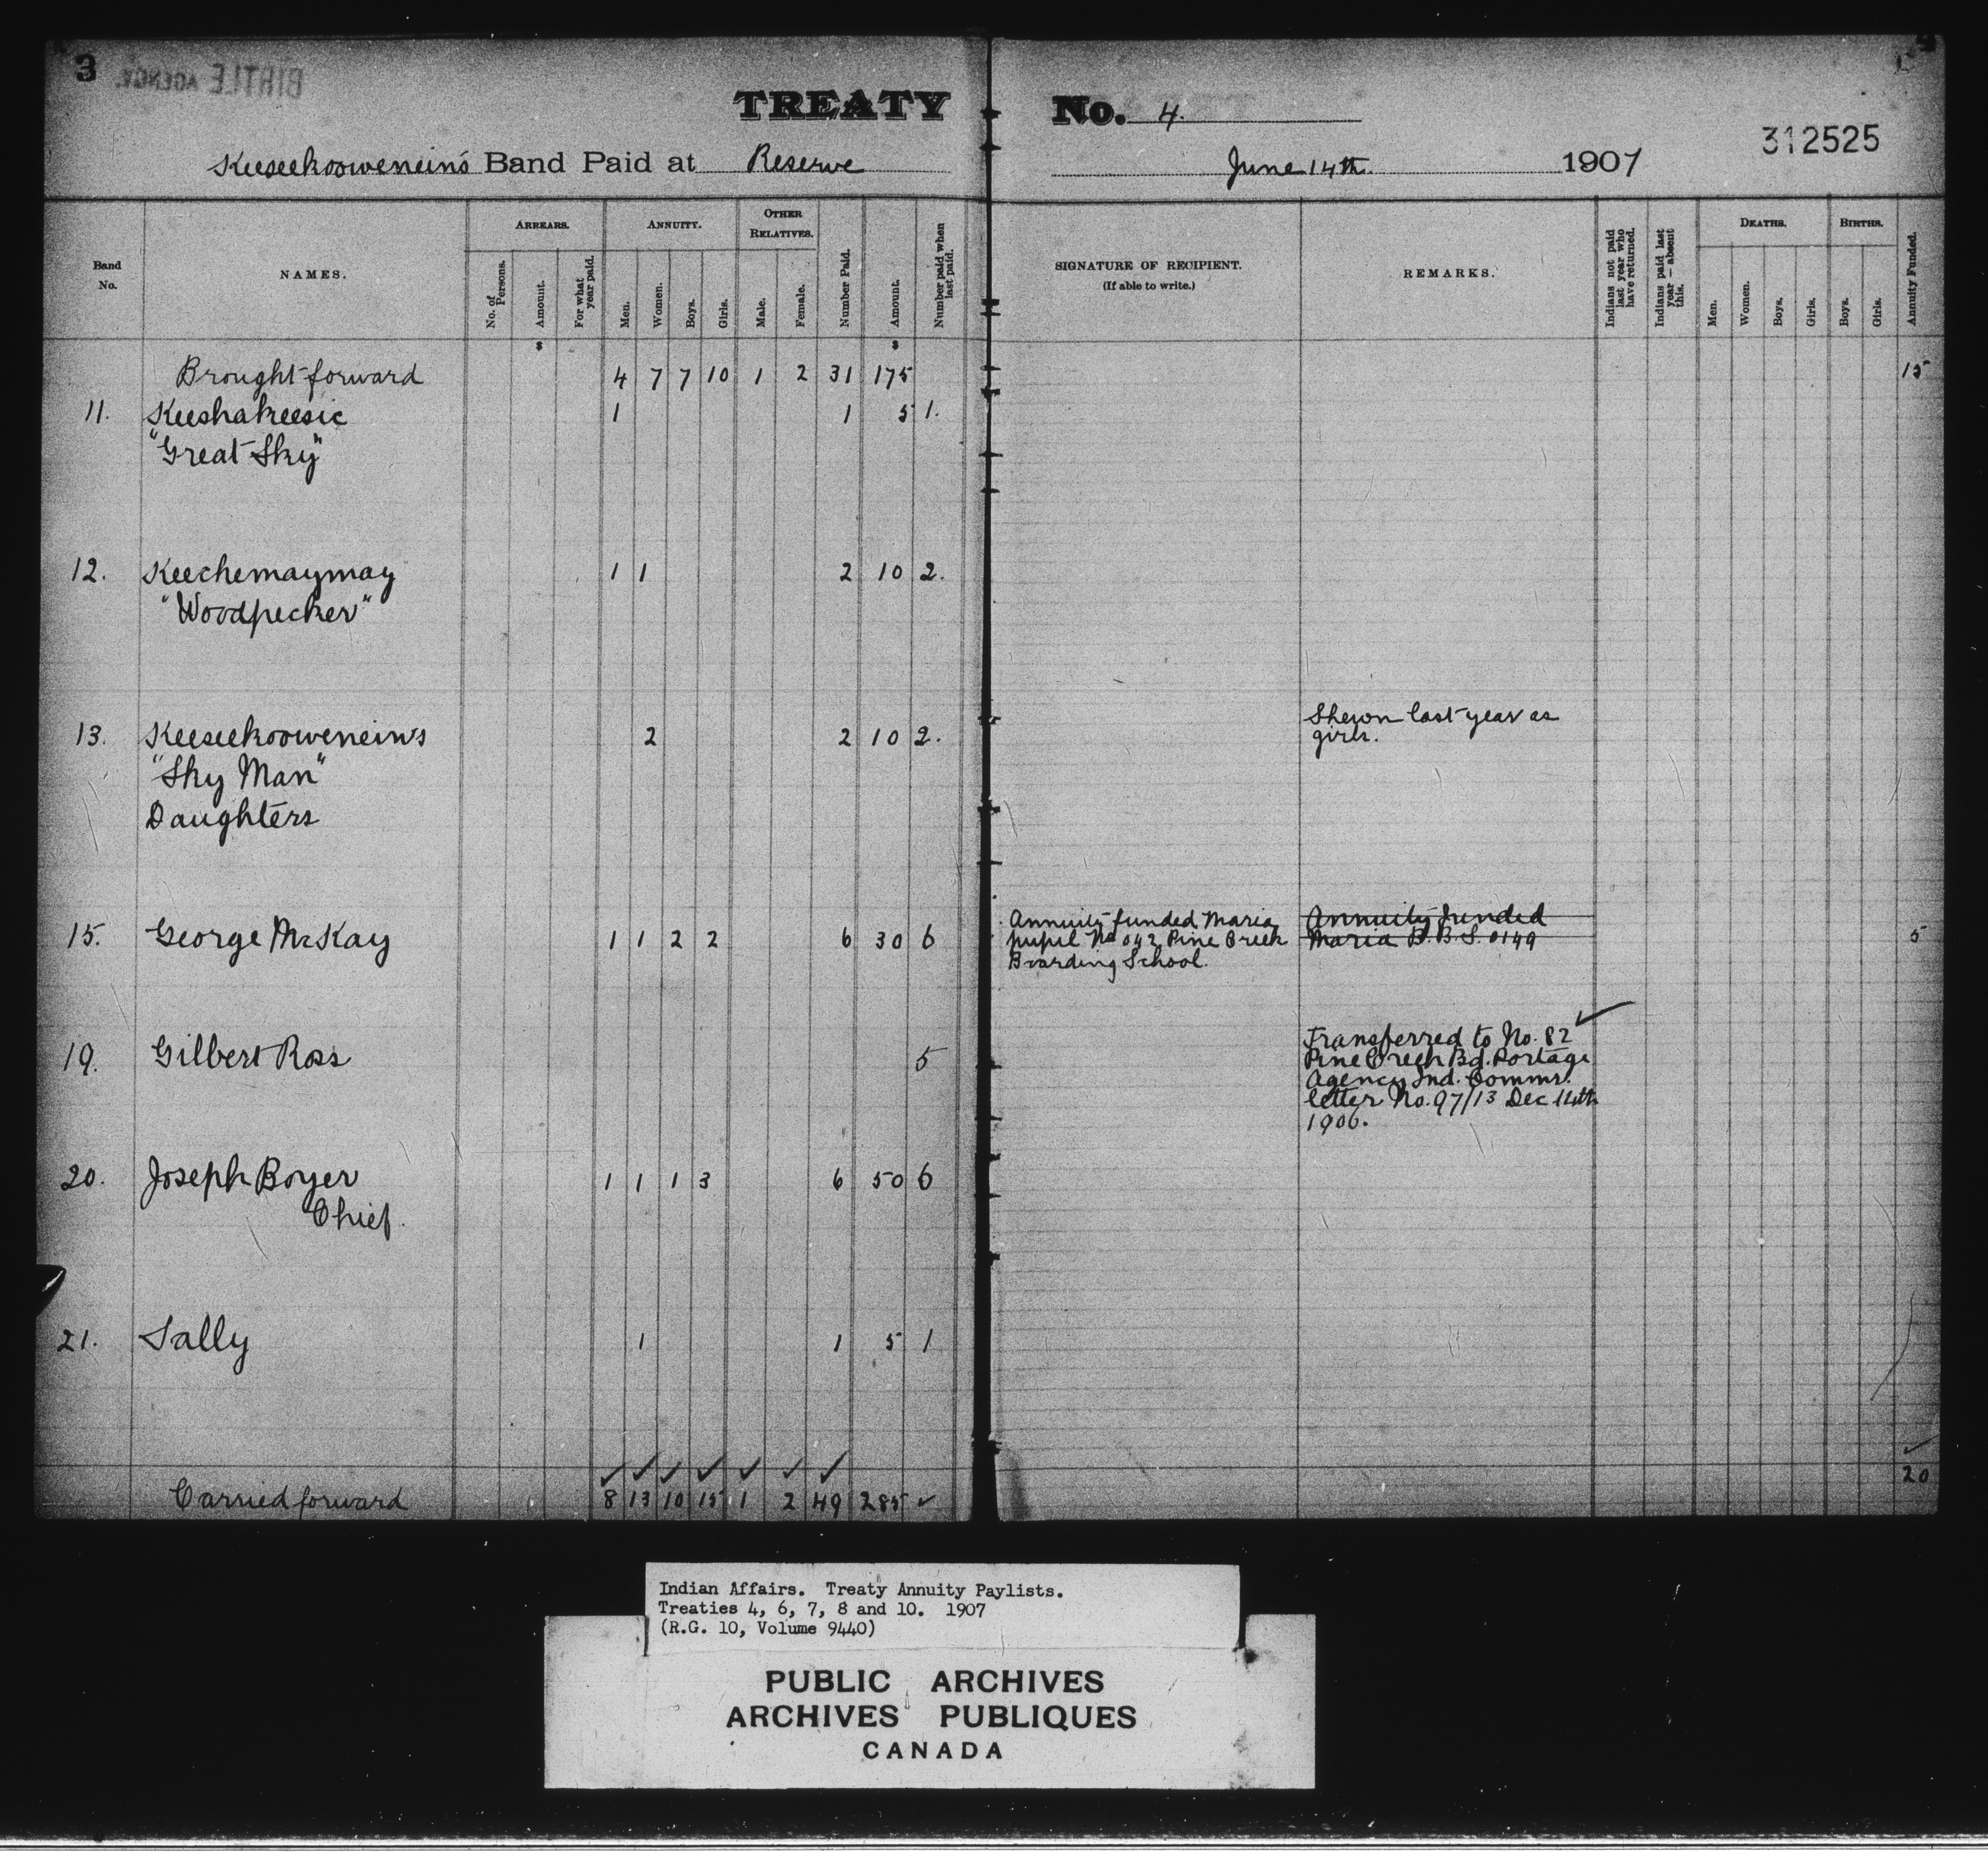 3 BIRTLE AGENCY.
TREATY No. 4.
312525
Keeseekoowenein's Band Paid at Reserve June 14th. 1907
Band No.
NAMES.
ARREARS.
No. of Persons.
Amount.
For what year paid.
ANNUITY.
Men.
Women.
Boys.
Girls.
OTHER RELATIVES.
Male.
Female.
Number Paid.
Amount.
Number paid when last paid.
SIGNATURE OF RECIPIENT.
(If able to write.)
REMARKS.
Indians not paid last year who have returned.
Indians paid last year — absent this.
DEATHS.
Men.
Women.
Boys.
Girls.
BIRTHS.
Boys.
Girls.
Annuity Funded.
$ $
Brought forward 4 7 7 10 1 2 31 175 15
11. Keeshakeesic 1 1 5 1.
"Great Sky"
12. Keechemaymay 1 1 2 10 2.
"Woodpecker"
Shewn last year as
13. Keeseekooweneins 2 2 10 2. girls.
"Sky Man"
Daughters
Annuity funded Maria Annuity funded
15. George McKay 1 1 2 2 6 30 6 pupil No 042 Pine Creek Maria B. B. S. 0149 5
Boarding School.
Transferred to No. 82
19. Gilbert Ross 5 Pine Creek Bd. Portage
Agency Ind. Commr.
letter No. 97/13 Dec 14th
1906.
20. Joseph Boyer 1 1 1 3 6 50 6
Chief.
21. Sally 1 1 5 1
Carried forward 8 13 10 15 1 2 49 285 20
Indian Affairs. Treaty Annuity Paylists.
Treaties 4, 6, 7, 8 and 10. 1907
(R.G. 10, Volume 9440)
PUBLIC ARCHIVES
ARCHIVES PUBLIQUES
CANADA